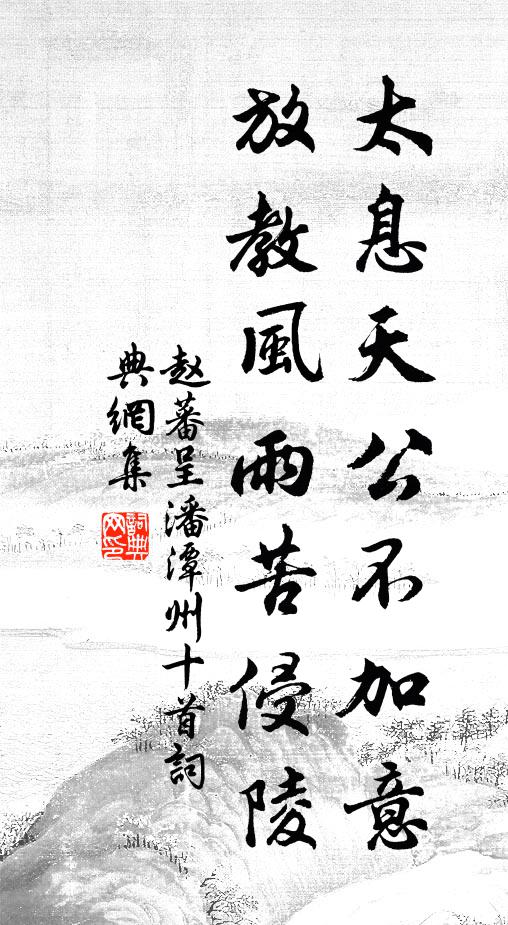 太息天公不加意
放教風雨苦侵陵
赵蕃呈潘潭州十首詞
典網集
詞典